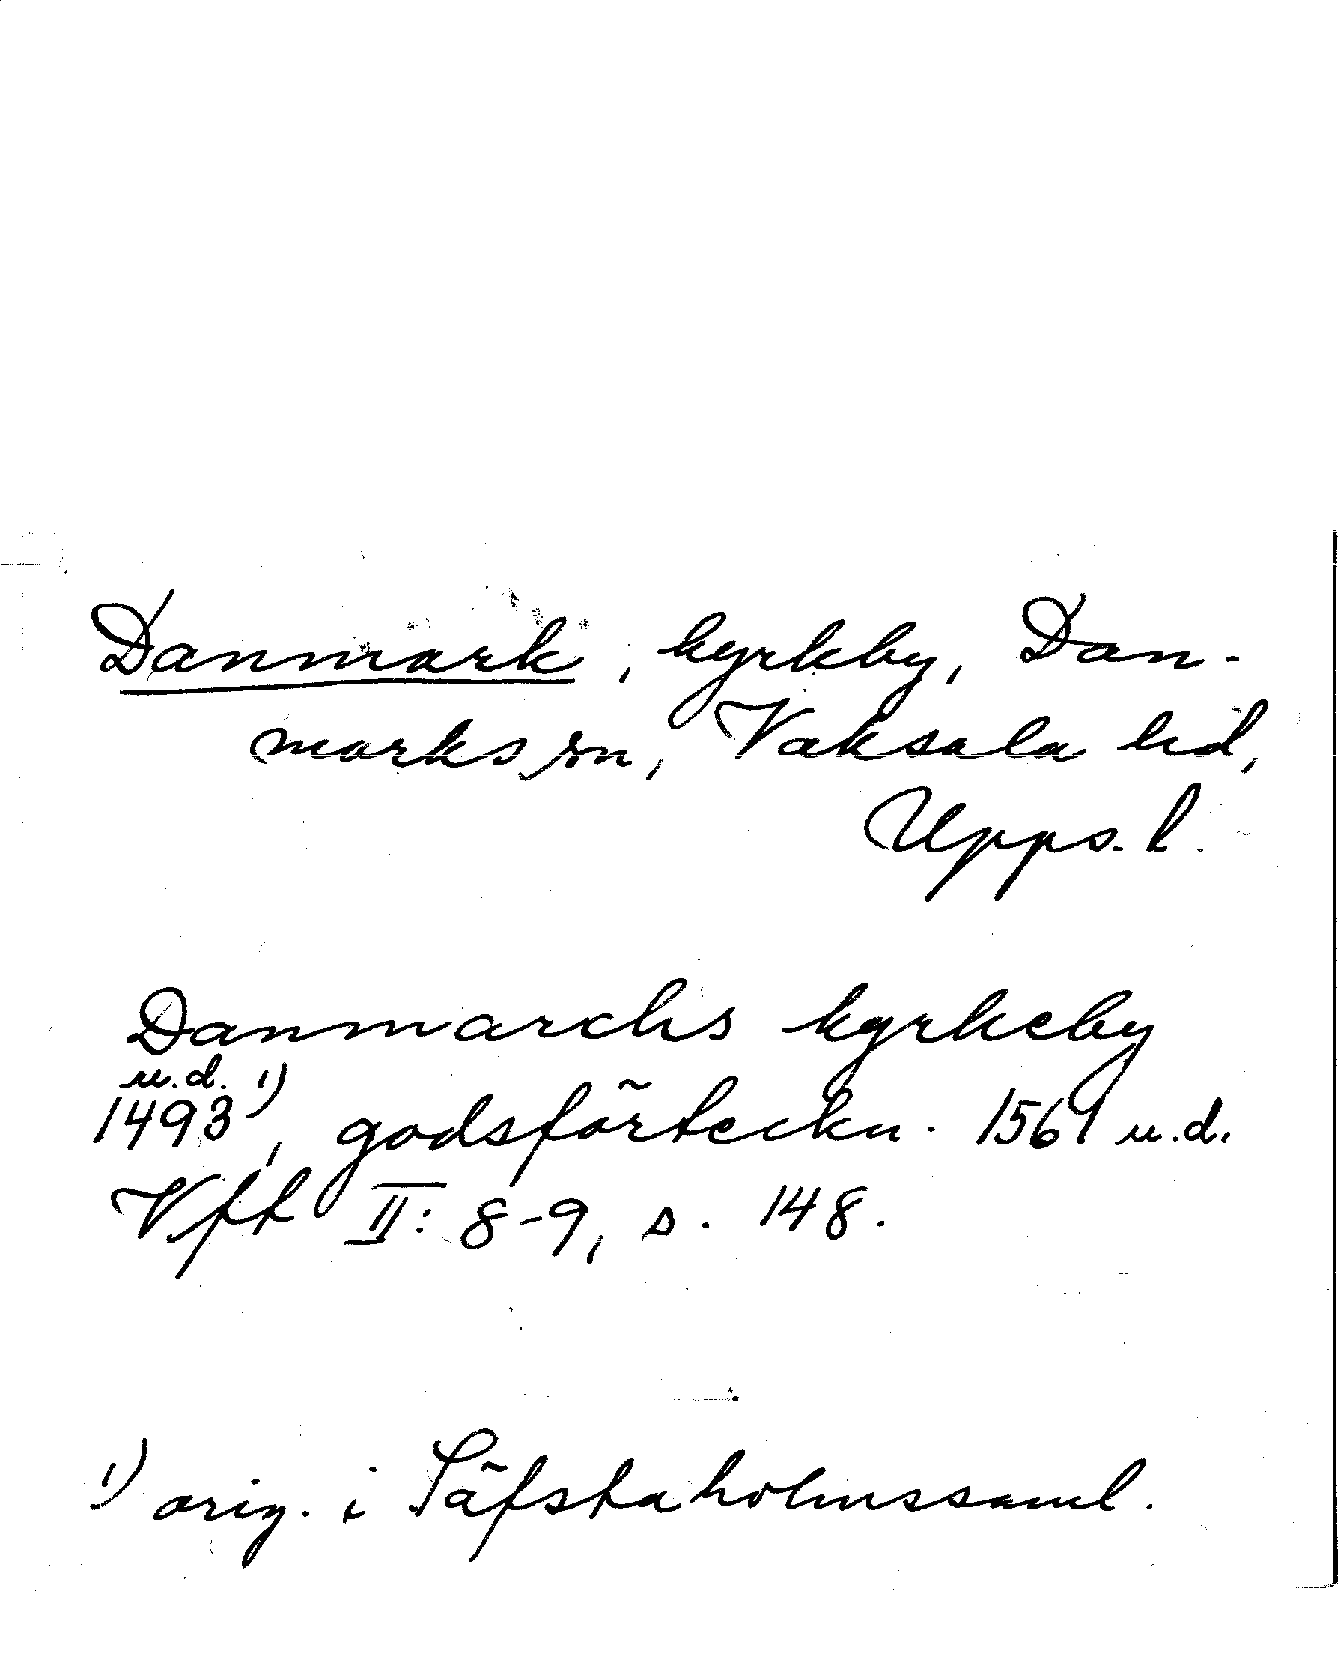 Danmark, kyrkby, Dan-
marks sn, Vaksala hd,
Upps. l.
Danmarchs kyrkeby
u.d. 1)
1493, godsförteckn. 1561 u.d.
Vft II: 8-9, s. 148.
1) orig. i Säfstaholmssaml.